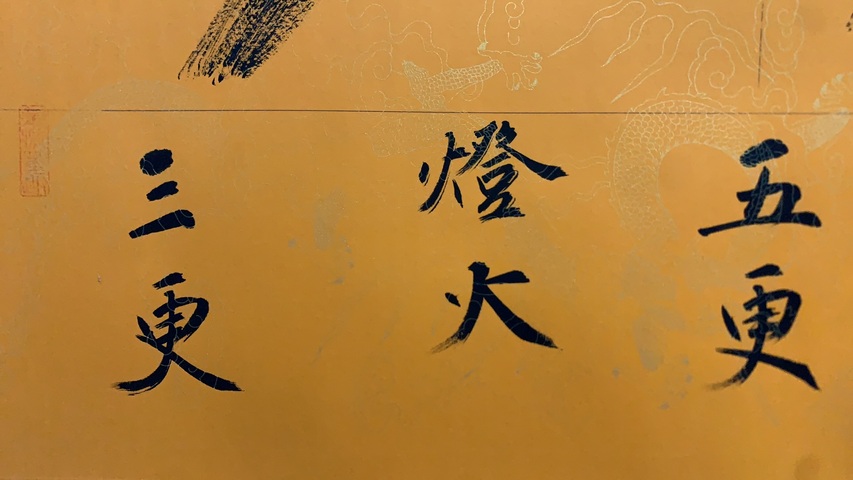 三更
燈火
五更